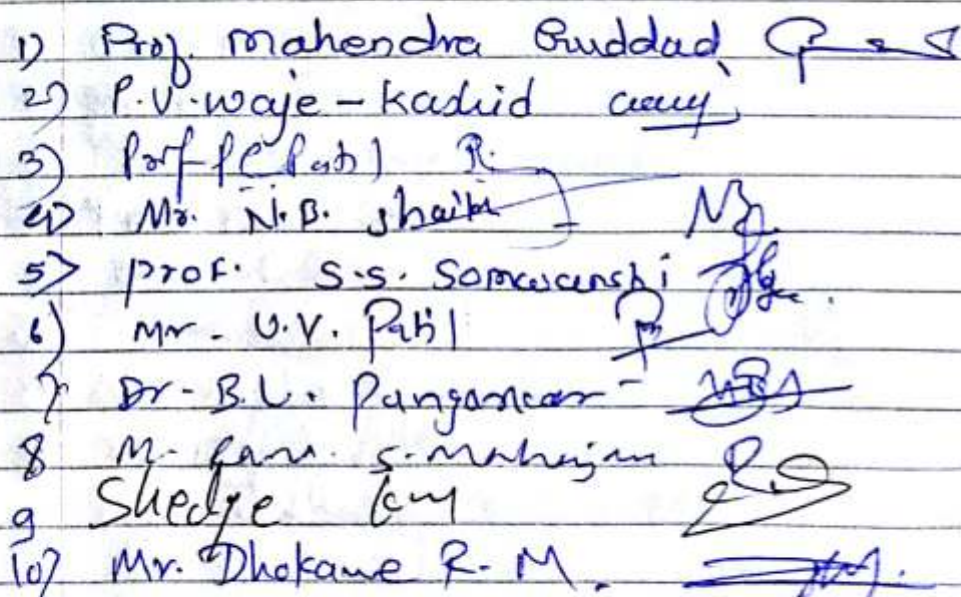 1) Prof. mahendra Guddad
2) P.V. waje - Kashid
3) Prof P C Patil
4) Mr. N.B. Shaikh
5) prof. S.S. Somwanshi
6) Mr. U.V. Patil
7 Dr. B.L. Pangarkar
8 M. S. Mahajan
9 Shedge
10) Mr. Dhokane R. M.